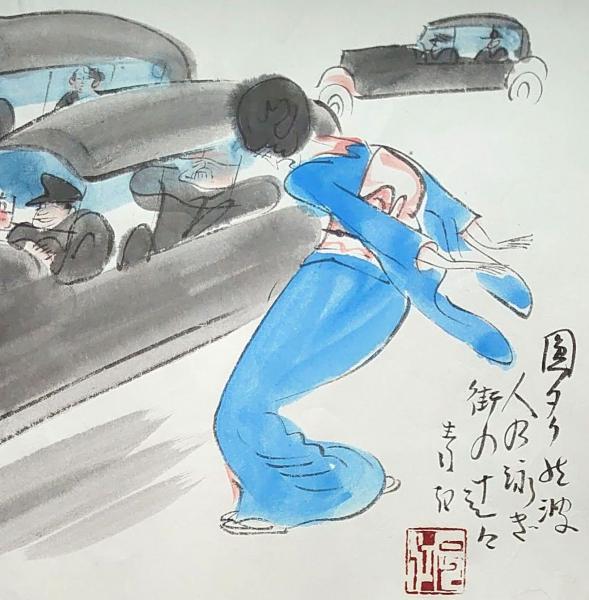 圓タクの波
人の泳ぎ
街の辻々